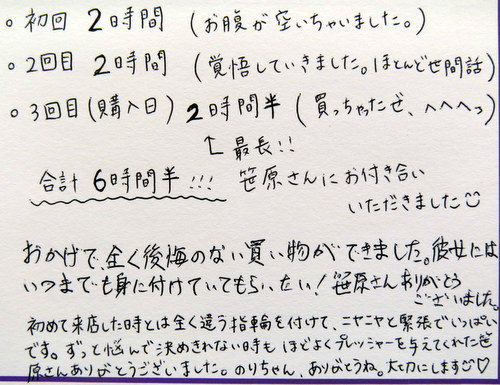 ○ 初回 2時間 (お腹が空いちゃいました。)
○ 2回目 2時間 (覚悟していきました。ほとんど世間話)
○ 3回目(購入日) 2時間半 (買っちゃったぜ、へへへっ)
↑ 最長!!
合計 6時間半!!! 笹原さんにお付き合い
いただきました
おかげで、全く後悔のない買い物ができました。彼女には
いつまでも身に付けていてもらいたい!笹原さんありがとう
ございました。
初めて来店した時とは全く違う指輪を付けて、ニヤニヤと緊張でいっぱい
です。ずっと悩んで決めきれない時も ほどよくプレッシャーを与えてくれた笹
原さんありがとうございました。のりちゃん、ありがとうね。大切にします♡